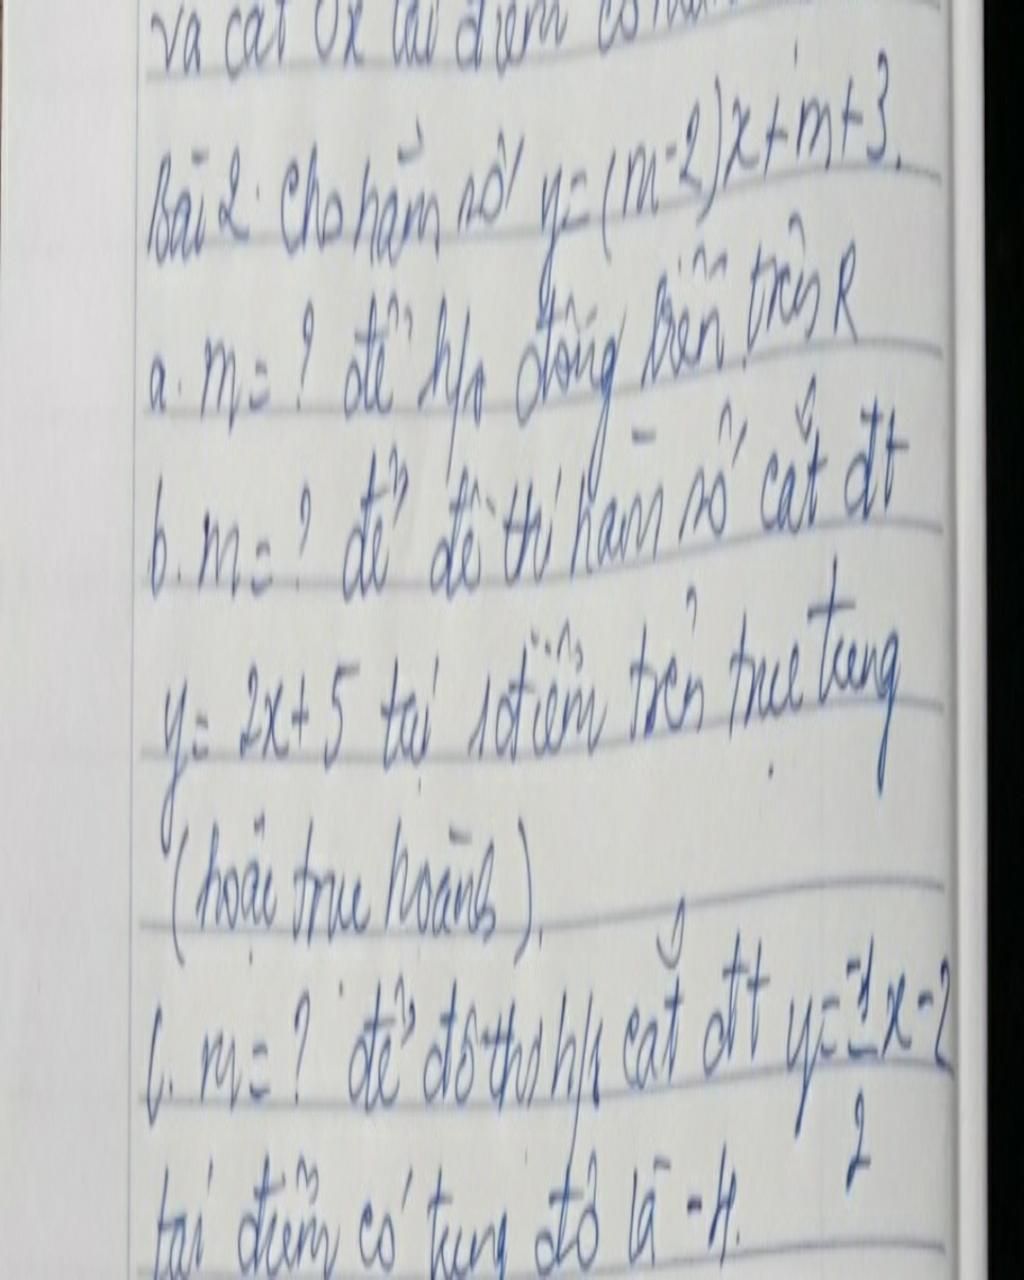 và cắt Ox tại điểm có
Bài 2. Cho hàm số y=(m-2)x+m+3.
a. m=? để h/s đồng biến trên R
b. m=? để đồ thị hàm số cắt đt
y=2x+5 tại 1 điểm trên trục tung
(hoặc trục hoành).
c. m=? để đồ thị h/s cắt đt y=-1/2x-2
tại điểm có tung độ là -4.